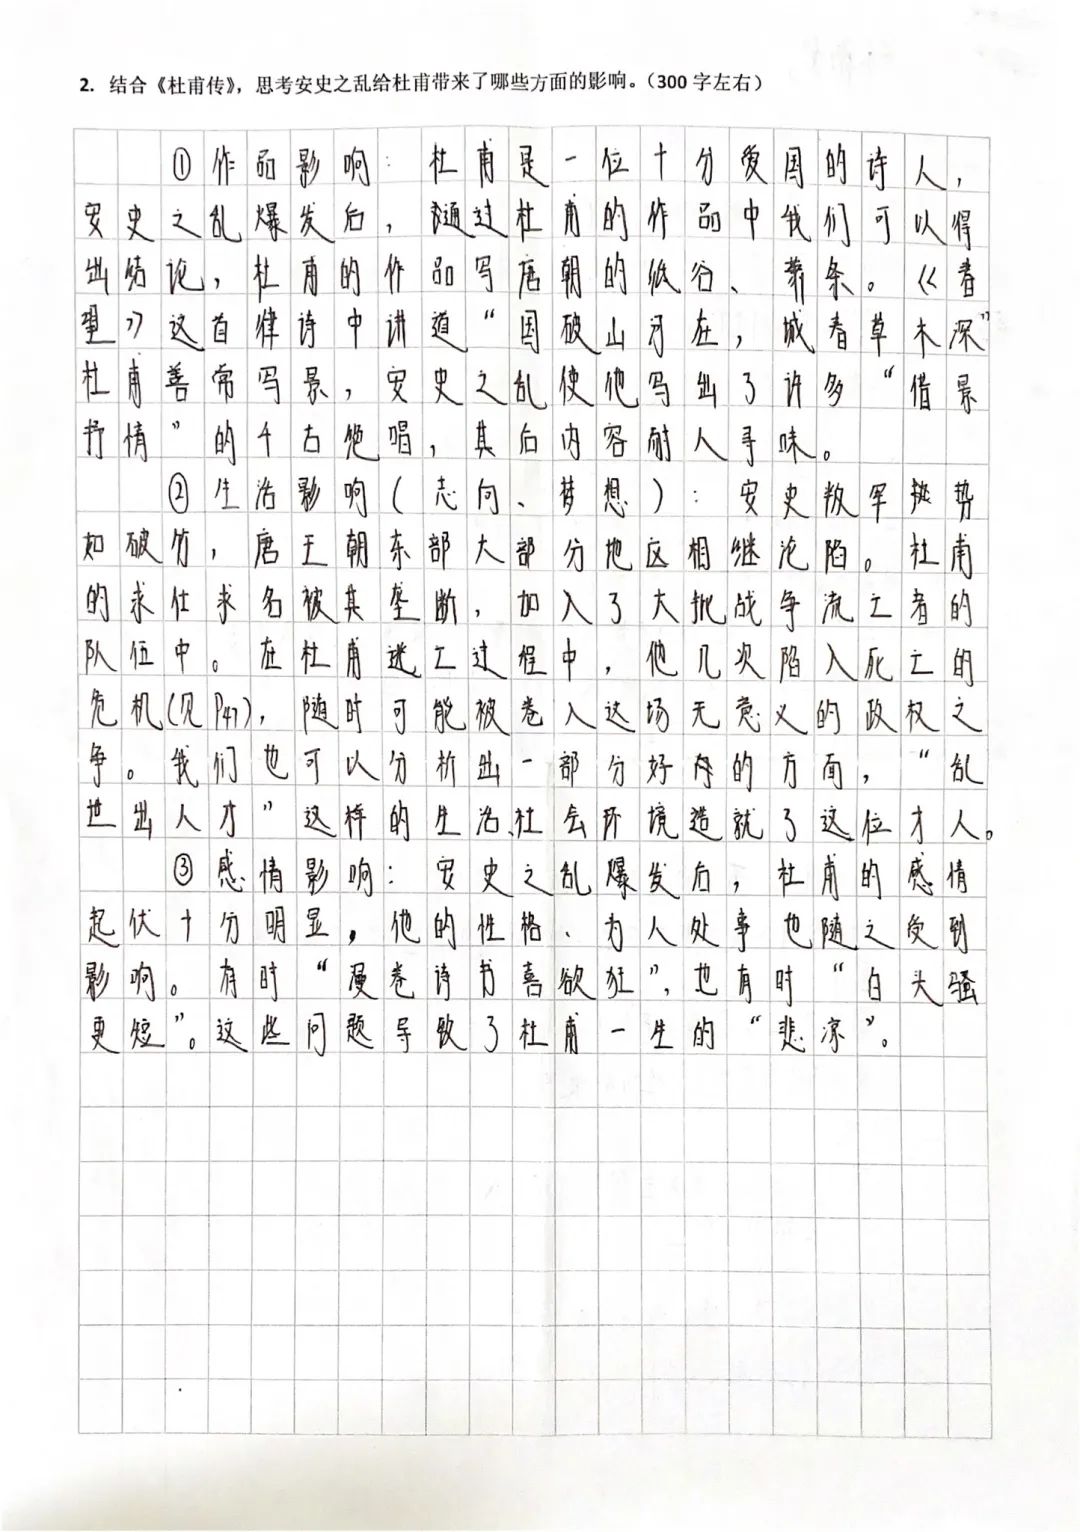 2. 结合《杜甫传》，思考安史之乱给杜甫带来了哪些方面的影响。（300 字左右）
①作品影响：杜甫是一位十分爱国的诗人，
安史之乱爆发后，通过杜甫的作品中我们可以得
出结论，杜甫的作品写唐朝的低谷、萧条。《春
望》这首律诗中讲道“国破山河在，城春草木深”
杜甫善常写景，安史之乱使他写出了许多“借景
抒情”的千古绝唱，其后内容耐人寻味。
②生活影响（志向、梦想）：安史叛军挺势
如破竹，唐王朝东部大部分地区相继沦陷。杜甫
的求仕求名被其垄断，加入了大批战争流亡者的
队伍中。在杜甫逃亡过程中，他几次陷入死亡的
危机(见P47)，随时可能被卷入这场无意义的政权之
争。我们也可以分析出一部分好的方面，“乱
世出人才”这样的生活、社会环境造就了这位才人。
③感情影响：安史之乱爆发后，杜甫的感情
起伏十分明显，他的性格、为人处事也随之受到
影响。有时“漫卷诗书喜欲狂”，也有时“白头骚
更短”。这些问题导致了杜甫一生的“悲凉”。